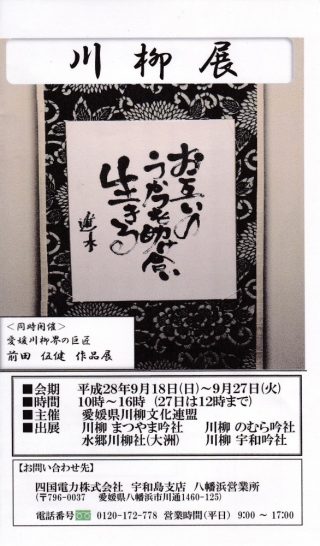 川柳展
お互いの
うかつを助け合い
生きる
<同時開催>
愛媛川柳界の巨匠
前田 伍健 作品展
■会期 平成28年9月18日(日)～9月27日(火)
■時間 10時～16時 (27日は12時まで)
■主催 愛媛県川柳文化連盟
■出展 川柳 まつやま吟社 川柳 のむら吟社
水郷川柳社(大洲) 川柳 宇和吟社
【お問い合わせ先】
四国電力株式会社 宇和島支店 八幡浜営業所
(〒796-0037 愛媛県八幡浜市川通1460-125)
電話番号 0120-172-778 営業時間(平日) 9:00 ～ 17:00